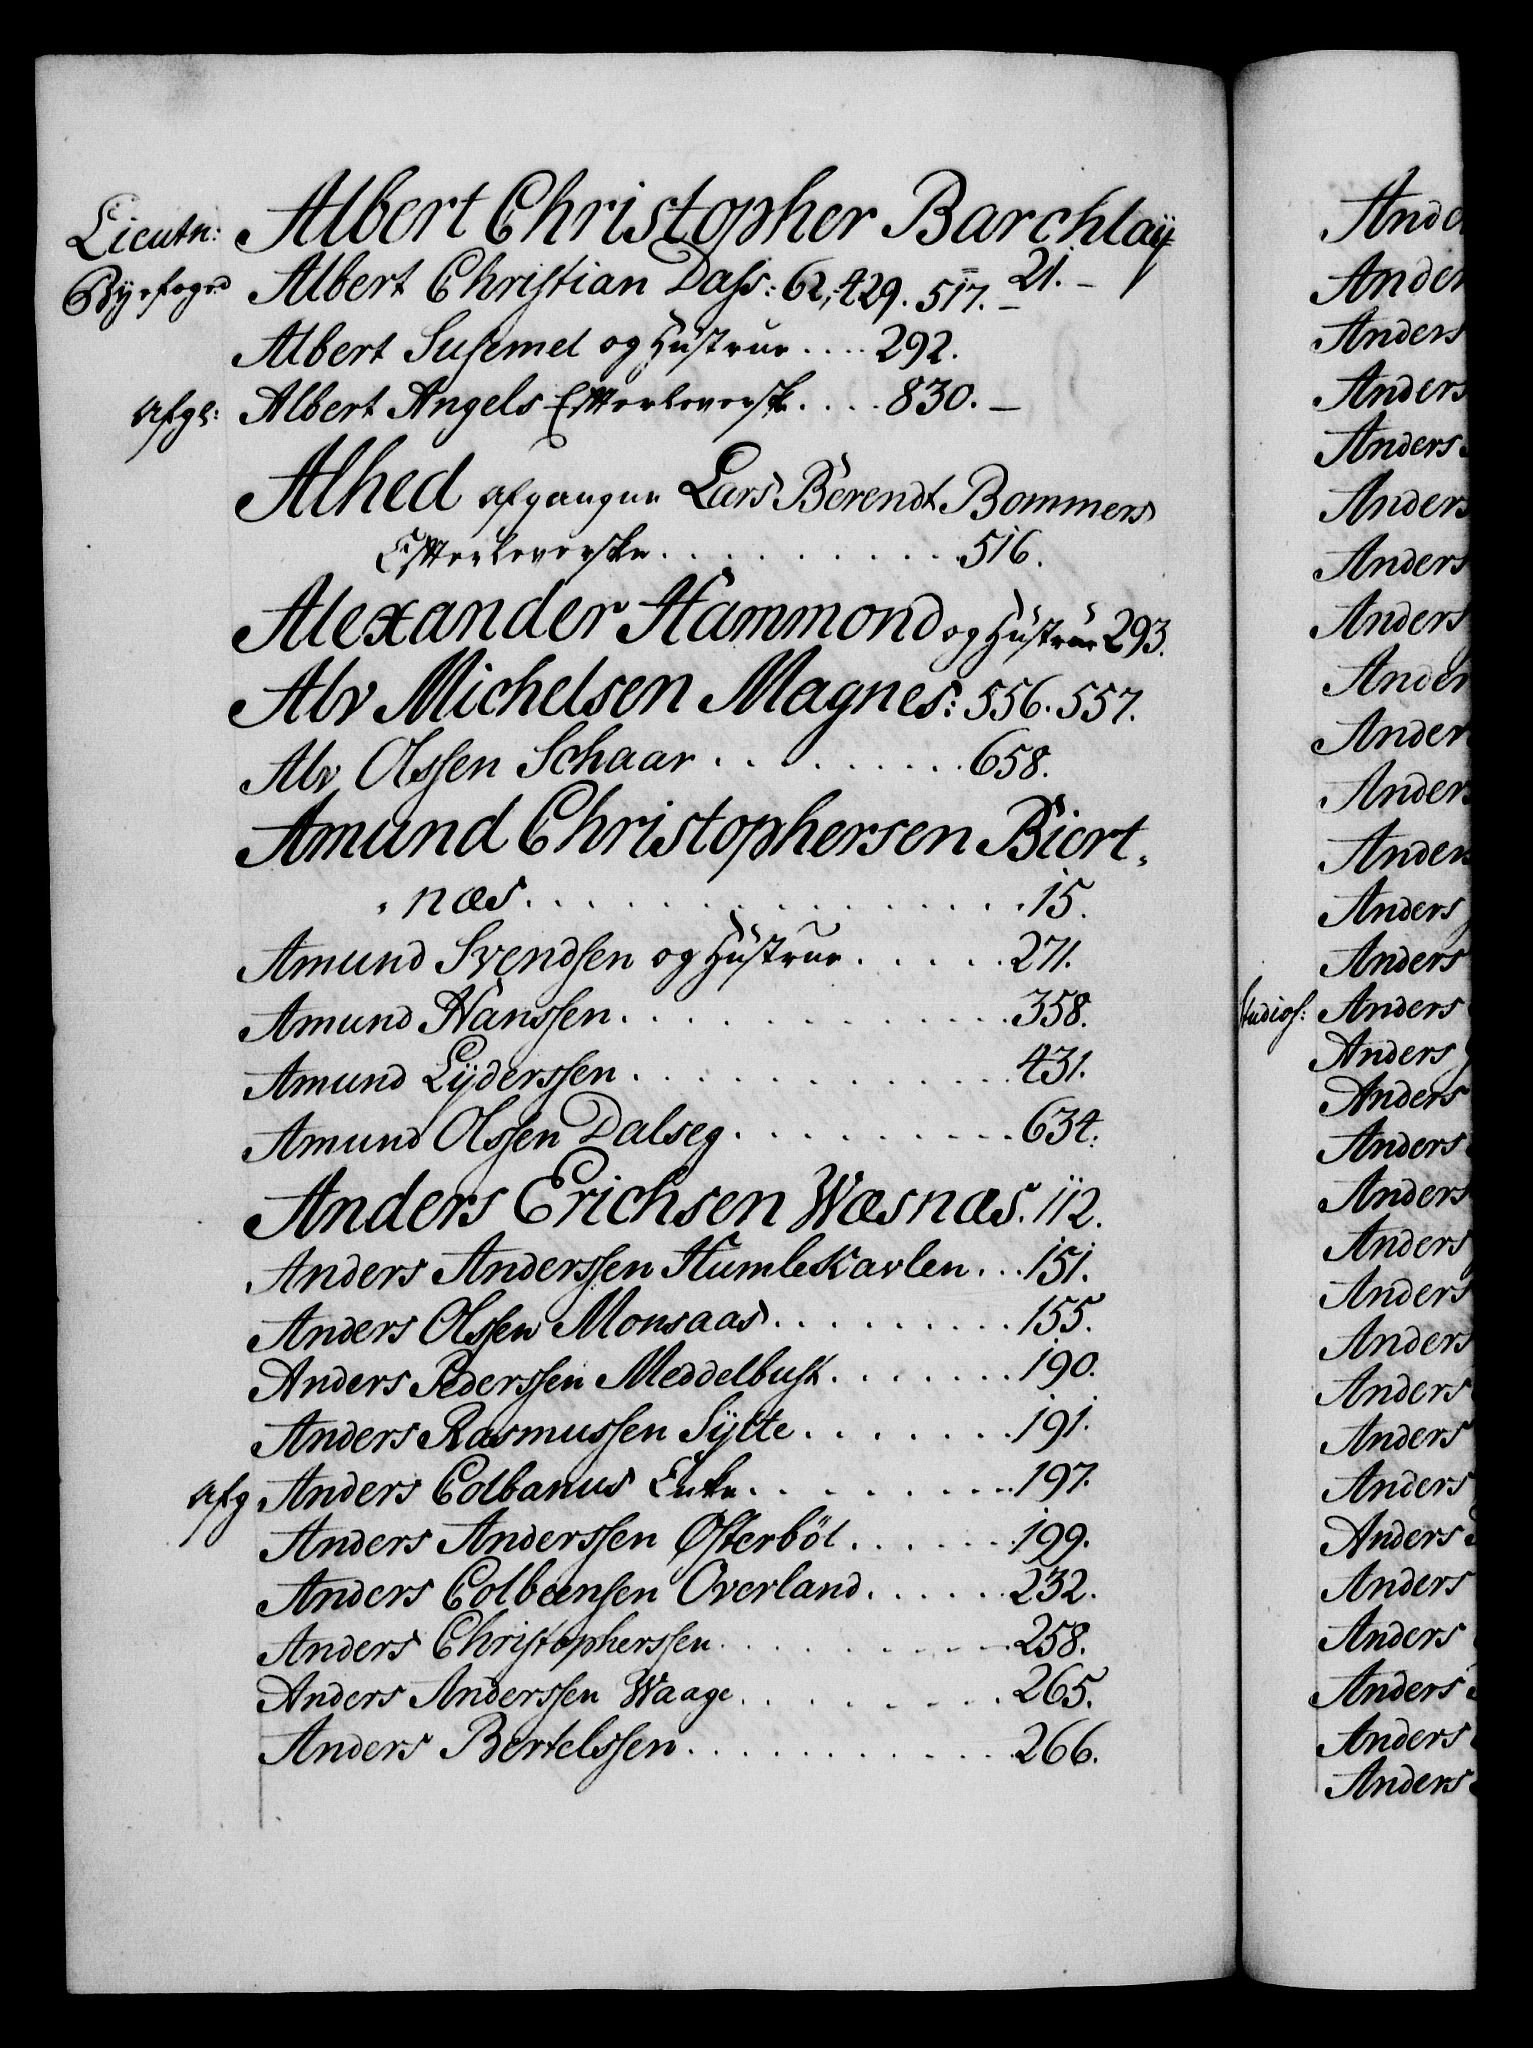 Lieutn: Albert Christopher Barchlaÿ
21.
Byefoged Albert Christian Dass: 62, 429. 517.
Albert Susemel og Hustrue .... 292.
Afgl: Albert Angels Effterleversk .... 830.
Alhed afgangne Lars Berendt Bommers
Effterleverske . . . . . . . . . . 516.
Alexander Hammond og Hustrue 293.
Alv Michelsen Magnes: 556. 557.
Alv Olssen Schaar . . . . . . . . 658.
Amund Christophersen Biert,
, næs . . . . . . . . . . . . . . . 15.
Amund Svendsen og Hustrue . . . . . 271.
Amund Hanssen . . . . . . . . . . . 358.
Amund Lÿderssen . . . . . . . . . . 431.
Amund Olssen Dalseg . . . . . . . . 634.
Anders Erichsen Wæsnæs. 112.
Anders Anderssen Humlekarlen . . . 151.
Anders Olssen Monsaas . . . . . . . . 155.
Anders Pederssen Meddelbust . . . . . . . 190.
Anders Rasmussen Sÿlte . . . . . . . 191.
Afg Anders Colbanus Enke . . . . . . . . 197.
Anders Anderssen Østerböl . . . . . . 199.
Anders Colbensen Overland . . . . . . 232.
Anders Christopherssen . . . . . . . . 258.
Anders Anderssen Waage . . . . . . . . 265.
Anders Bertelssen . . . . . . . . . . 266.
Ander
Ander
Anders
Anders
Anders
Anders
Anders
Anders
Ander
Ander
Anders
Anders
Anders
Anders
Studios: Anders
Anders
Anders
Anders
Anders
Anders
Anders
Anders
Anders
Anders
Anders
Anders
Anders
Anders
Anders
Anders
Anders